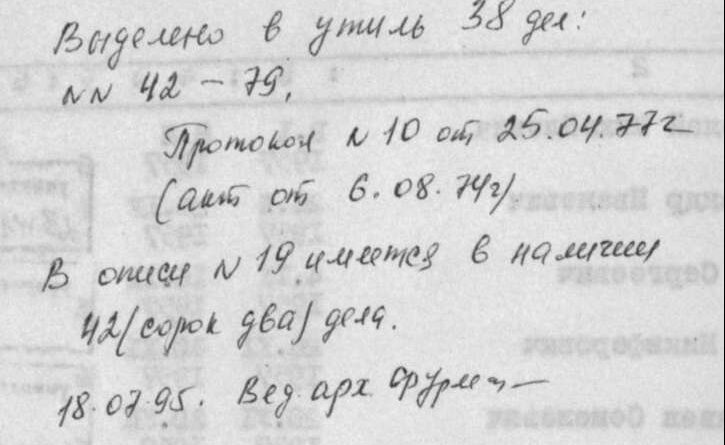 Выделено в утиль 38 дел:
NN 42 – 79.
Протокол N 10 от 25.04.77г
(акт от 6.08.74г)
В описи N 19 имеется в наличии
42 (сорок два) дела.
18.07.95. Вед. арх.